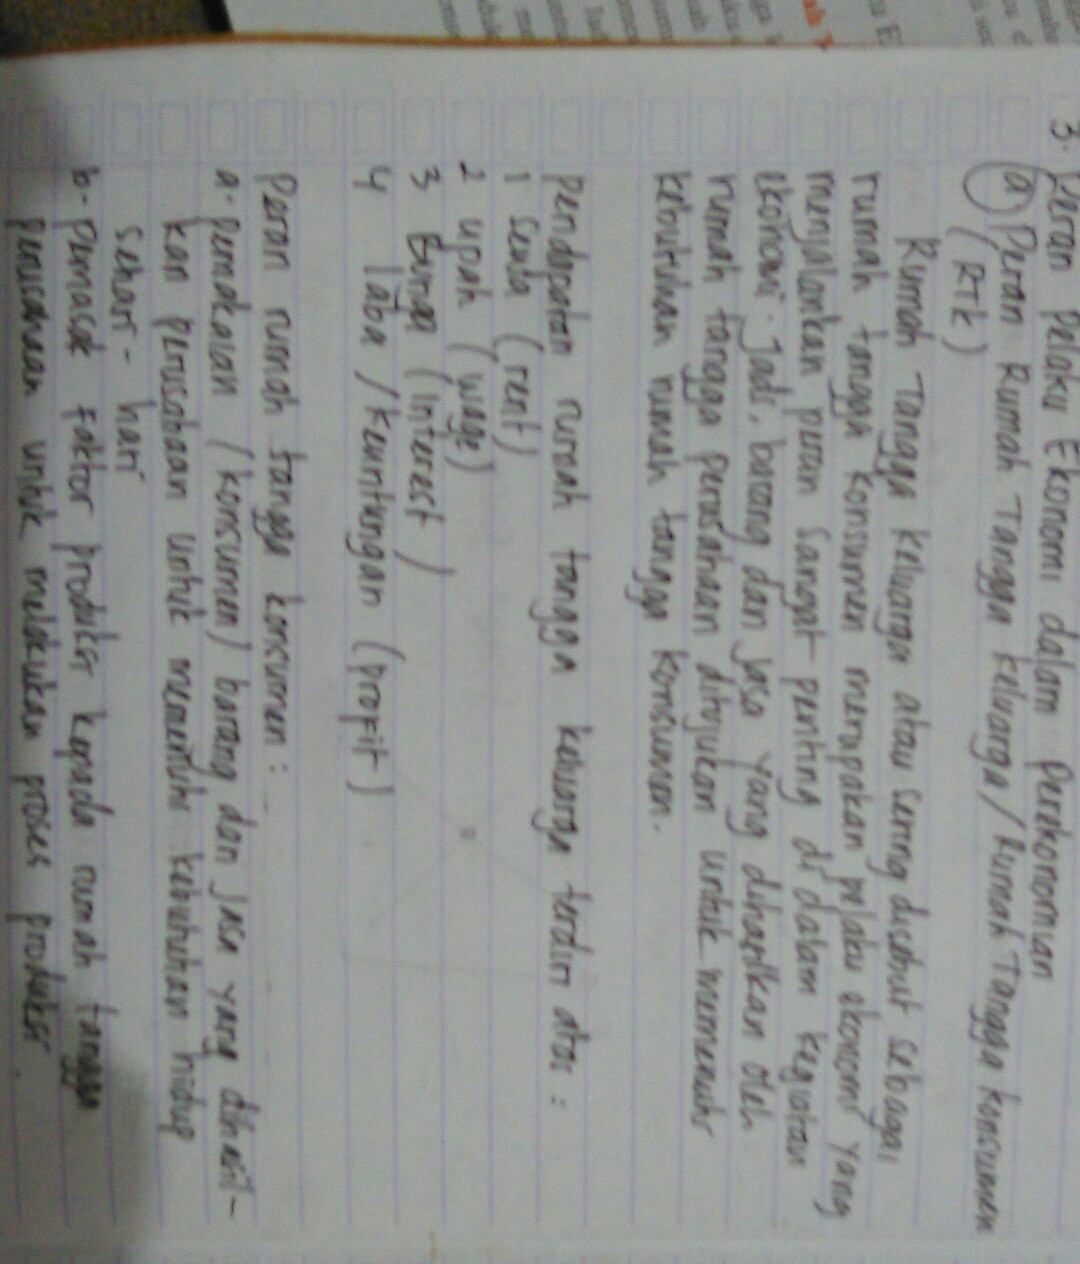 3. Peran Pelaku Ekonomi dalam Perekonomian
a) Peran Rumah Tangga Keluarga / Rumah Tangga Konsumen
(RTK)
Rumah Tangga Keluarga atau sering disebut sebagai
rumah tangga Konsumen merupakan pelaku ekonomi yang
menjalankan peran sangat penting di dalam kegiatan
ekonomi. Jadi, barang dan jasa yang dihasilkan oleh
rumah tangga perusahaan ditujukan untuk memenuhi
kebutuhan rumah tangga Konsumen.
Pendapatan rumah tangga keluarga terdiri atas :
1 Sewa (rent)
2 upah (wage)
3 Bunga (Interest)
4 laba / keuntungan (profit)
Peran rumah tangga konsumen :
a. pemakaian / konsumen) barang dan jasa yang dihasil-
kan perusahaan untuk memenuhi kebutuhan hidup
sehari - hari
b. Pemasok faktor produksi kepada rumah tangga
perusahaan untuk melakukan proses produksi